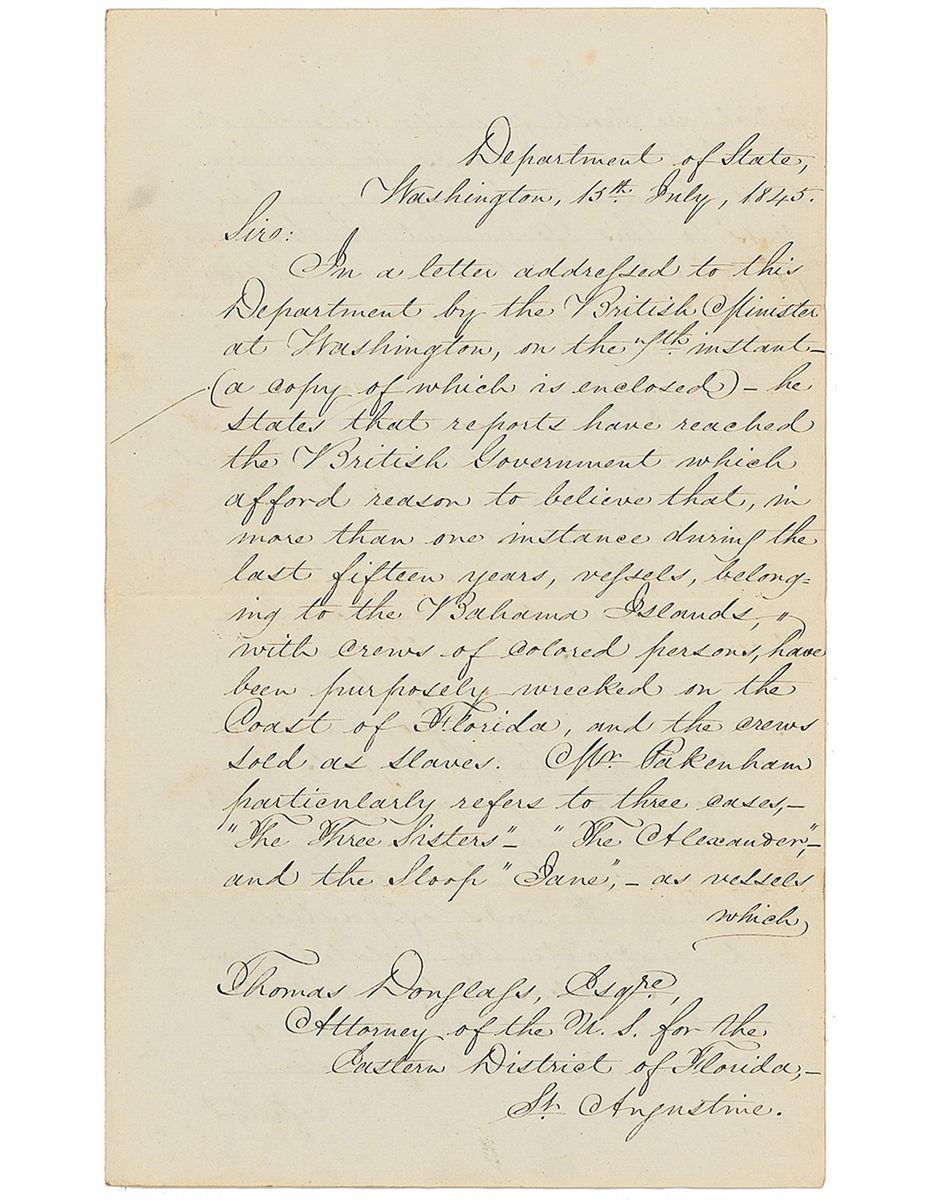 Department of State,
Washington, 15th July, 1845.
Sir:
In a letter addressed to this
Department by the British Minister
at Washington, on the 7th instant –
(a copy of which is enclosed) – he
states that reports have reached
the British Government which
afford reason to believe that, in
more than one instance during the
last fifteen years, vessels, belong=
ing to the Bahama Islands, "
with crews of colored persons, have
been purposely wrecked on the
Coast of Florida, and the crews
sold as slaves. Mr. Pakenham
particularly refers to three cases, –
"The Three Sisters" – "The Alexander", –
and the Sloop "Jane", – as vessels
which
Thomas Douglass, Esqre,
Attorney of the U. S. for the
Eastern District of Florida, –
St. Augustine.